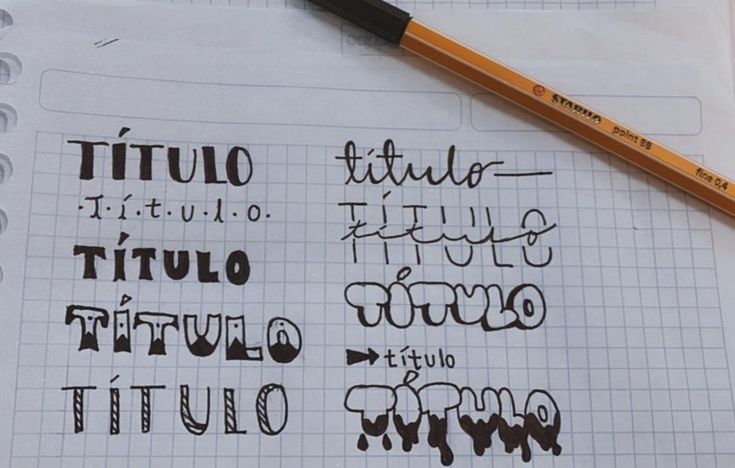 TÍTULO
·T·í·t·u·l·o·
TÍTULO
TÍTULO
TÍTULO
título
TÍTULO
título
TÍTULO
título
TÍTULO
STABILO point 88 fine 0,4